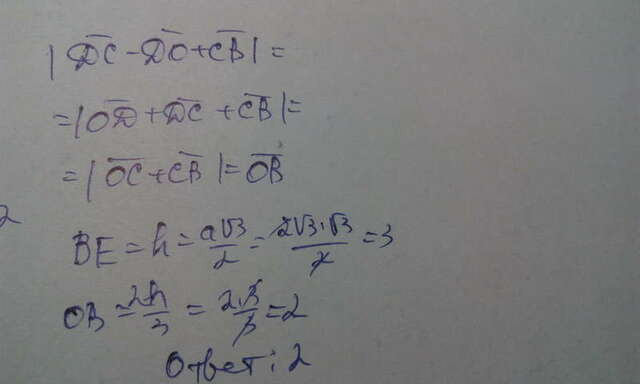 |D̅C̅ - D̅O̅ + C̅B̅| =
= |O̅D̅ + D̅C̅ + C̅B̅| =
= |O̅C̅ + C̅B̅| = O̅B̅
2
BE = h = a√3/2 = 2√3·√3/2 = 3
OB = 2h/3 = 2·3/3 = 2
Ответ: 2